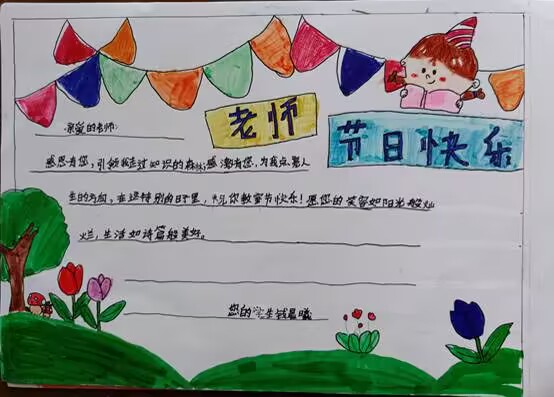 老师
节日快乐
亲爱的老师:
感恩有您,引领我走过知识的森林;感谢有您,为我点亮人
生的方向,在这特别的日子里,祝你教室节快乐!愿您的笑容如阳光般灿
烂,生活如诗篇般美好。
您的学生钱晨曦